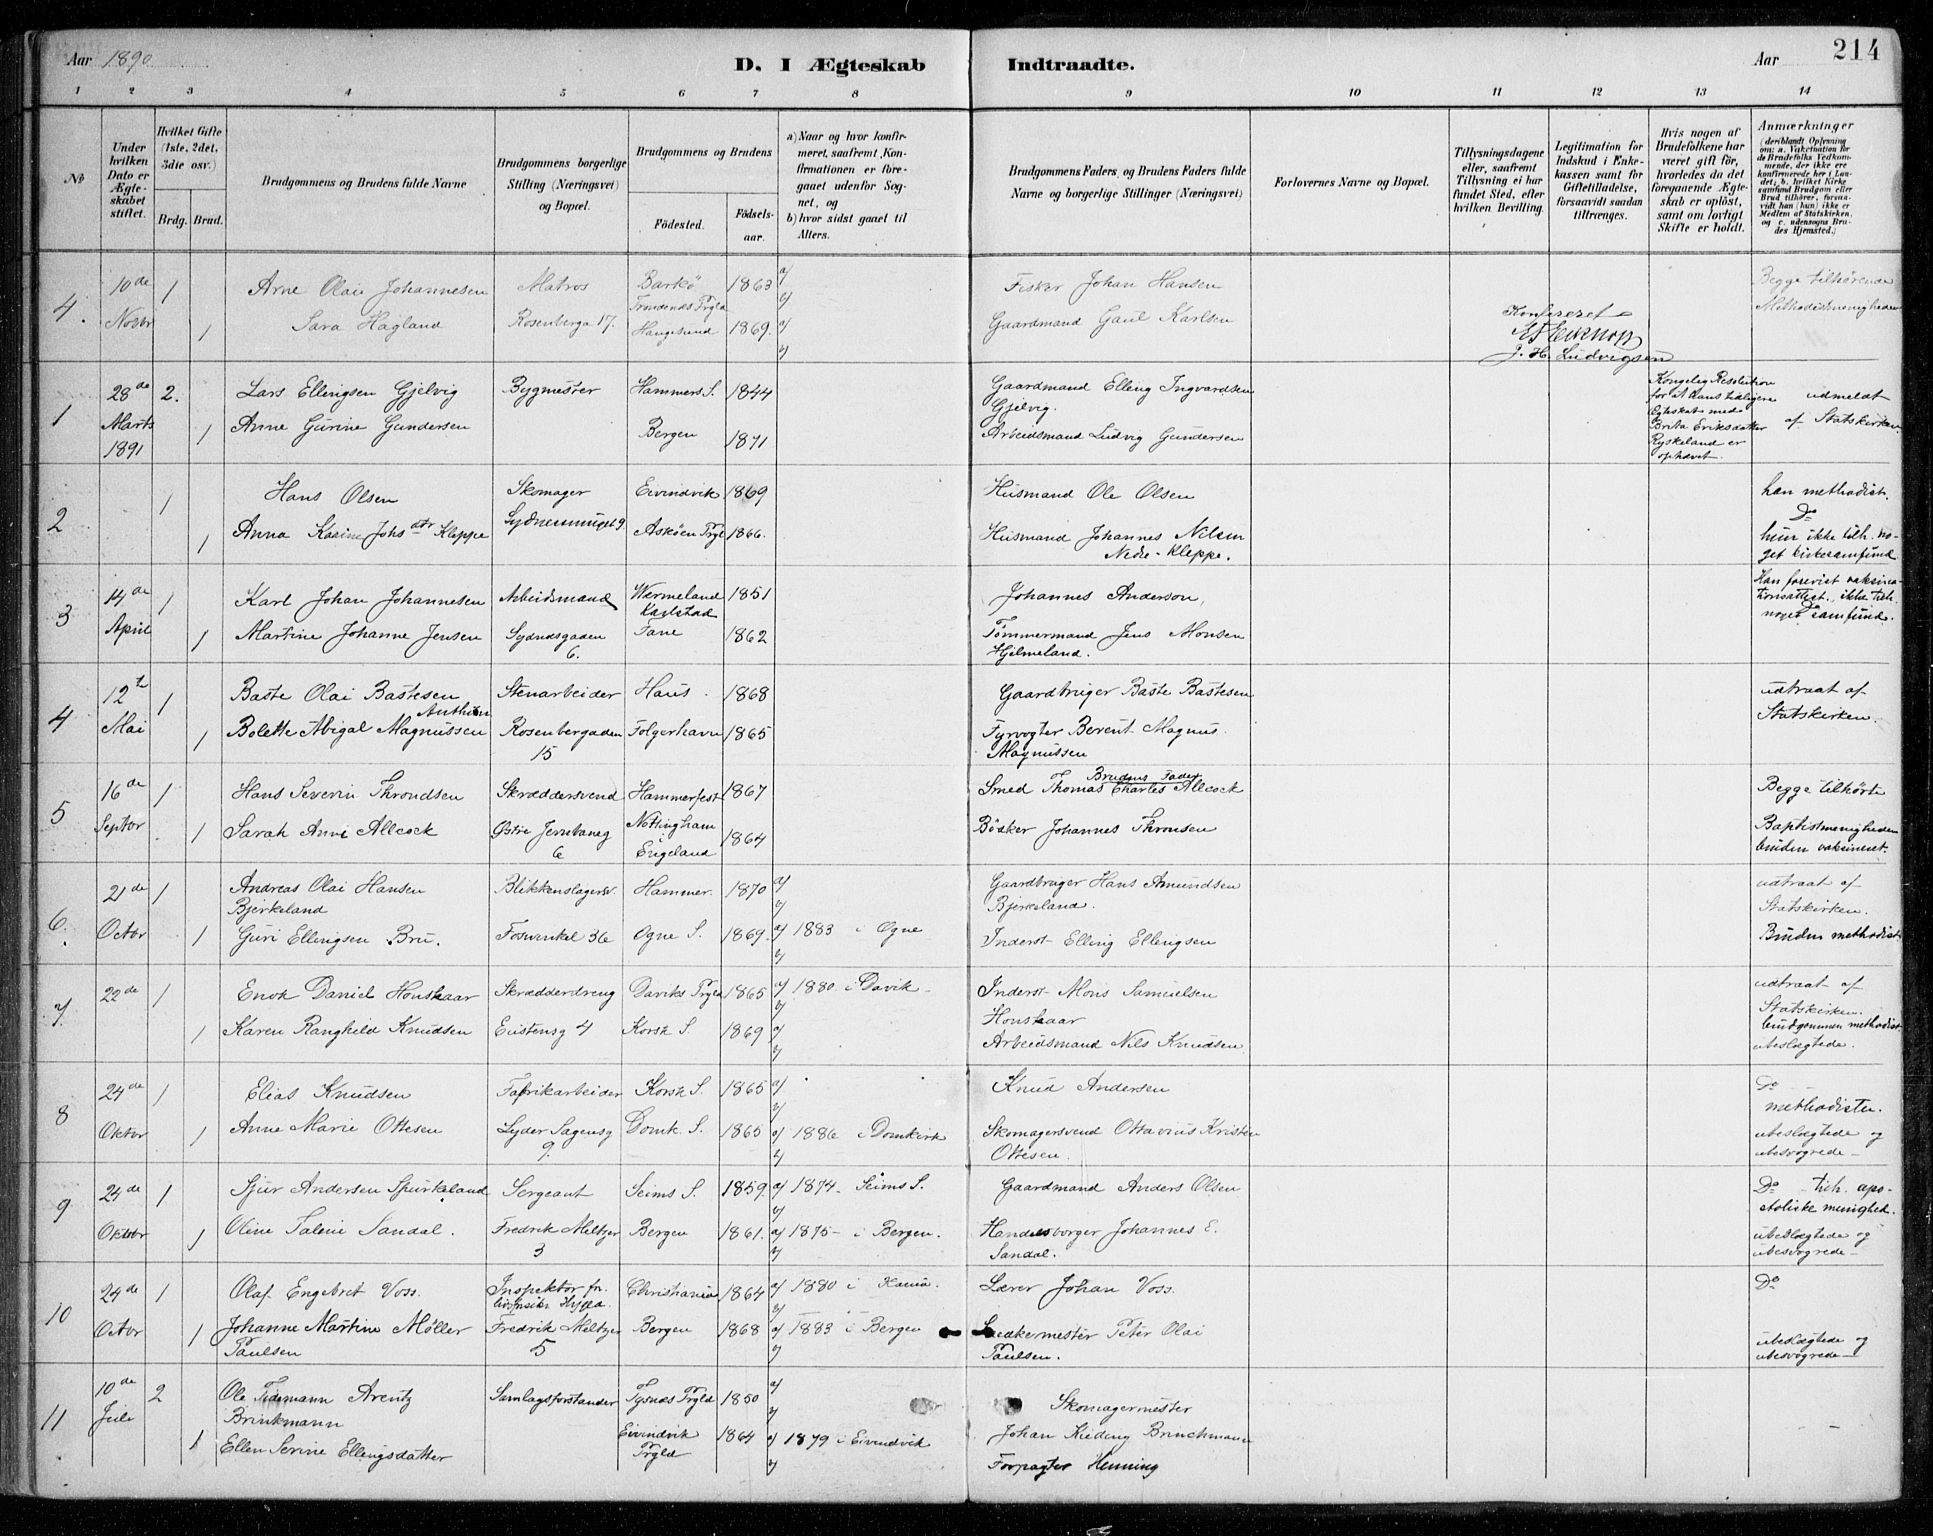 Aar 1890
D. I Ægteskab Indtraadte.
Aar
214
1 2 3 4 5 6 7 8 9 10 11 12 13 14
№
Under hvilken Dato er Ægteskabet stiftet.
Hvilket Gifte (1ste, 2det, 3die osv.)
Brdg. Brud.
Brudgommens og Brudens fulde Navne
Brudgommens borgerlige Stilling (Næringsvei) og Bopæl.
Brudgommens og Brudens
Fødested.
Fødselsaar.
a) Naar og hvor konfirmeret, saafremt Konfirmationen er foregaaet udenfor Sognet, og
b) hvor sidst gaaet til Alters.
Brudgommens Faders og Brudens Faders fulde Navne og borgerlige Stillinger (Næringsvei)
Forlovernes Navne og Bopæl.
Tillysningsdagene eller, saafremt Tillysning ei har fundet Sted, efter hvilken Bevilling.
Legitimation for Indskud i Enkekassen samt for Giftetilladelse, forsaavidt saadan tiltrænges.
Hvis nogen af Brudefolkene har været gift før, hvorledes da det foregaaende Ægteskab er opløst, samt om lovligt Skifte er holdt.
Anmærkninger
(deriblandt Oplysning om: a. Vaksination for de Brudefolks Vedkommende, der ikke ere konfirmerede her i Landet; b. hvilket Kirkesamfund Brudgom eller Brud tilhører, forsaavidt han (hun) ikke er Medlem af Statskirken, og c. udensogns Brudes Hjemsted.)
4. 10de Novbr 1 Arne Olai Johannesen Matros Barkö 1863 a/ b/ Fisker Johan Hansen Begge tilhørende
1 Sara Hagland Rosenberga 17. Haugesund 1869. a/ b/ Gaardmand Karlsen Methodistmenigheden
Konfereret
J. H. Ludvigsen
1 28de Marts 1891 2. Lars Ellingsen Gjelvig Bygmester Hammers S. 1844 Gaardmand Elling Ingvardsen Gjelvig. Kongelig Resolution for at Hans tidligere Ægteskab med Brita Eriksdatter Ryskeland er ophævet. udmeldt af Statskirken.
1 Anne Gurine Gundersen Bergen 1871 Arbeidsmand Ludvig Gundersen
2 1 Hans Olsen Skomager Eivindvik 1869 Husmand Ole Olsen han methodist. Do
1 Anna Karine Johsdtr Kleppe Askøen Prgld 1866. Husmand Johannes Nilsen Nedre-Kleppe. hun ikke tilh. noget kirkesamfund
3 14de April 1 Karl Johan Johannesen Arbeidsmand Wermeland Karlstad 1851 Johannes Anderson, Han forevist vaksinationsattest. ikke tilh. noget samfund. Do
1 Martine Johanne Jensen Sydnæsgaden 6. Fane 1862 Tømmermand Jens Monsen Hjelmeland.
4 12te Mai 1 Baste Olai Bastesen Stenarbeider Haus. 1868 Gaardbruger Baste Bastesen udtraat af Statskirken.
1 Bolette Abigal Magnussen Rosenbergaden 15 Folgerhavn 1865 Fyrvogter Berent Magnus Magnussen
5 16de Septbr 1 Hans Severin Throndsen Skræddersvend Hammerfest 1867 Brudens Fader Smed Thomas Charles Allcock Begge tilhørte
1 Sarah Anni Allcock Østre Jernbaneg 6 Nottingham i Engeland 1864 Bødker Johannes Thronsen Baptistmenigheden bruden vaksineret.
6. 21de Octbr 1 Andreas Olai Hansen Bjerkeland Blikkenslagersv. Hammer. 1870 a/ b/ Gaardbruger Hans Amundsen Bjerkeland. udtraat af Statskirken.
1 Guri Ellingsen Bru. Fosvinkel 36 Ogne S. 1869. a/ 1883 i Ogne b/ Inderst Elling Ellingsen Bruden methodist
7. 22de 1 Enok Daniel Honskaar Skrædderdreng Daviks Prgld 1865 a/ 1880 i Davik b/ Inderst Mons Samuelsen Honskaar udtraat af Statskirken.
1 Karen Ranghild Knudsen Eistensg 4 Korsk S. 1869 a/ b/ Arbeidsmand Nils Knudsen brudgommen methodist ubeslægtede.
8 24de Oktbr 1 Elias Knudsen Fabrikarbeider Korsk S. 1865 a/ b/ Knud Andersen Do methodister.
1 Anne Marie Ottesen Lyder Sagensg 9. Domk. S. 1865 a/ 1886 i Domkirk b/ Skomagersvend Ottavius Kristen Ottesen. ubeslægtede og ubesvogrede
9 24de Oktober 1 Sjur Andersen Spurkeland Sergeant Seims S. 1859. a/ 1874 Seims S. b/ Gaardmand Anders Olsen Do tilh. apostoliske menighed.
1 Oline Salene Sandal. Fredrik Meltzer 3 Bergen 1861. a/ 1875 i Bergen. b/ Handelsborger Johannes E. Sandal. ubeslægtede og ubesvogrede
10 24de Octbr 1 Olaf Engebret Voss. Inspektor Christiania 1864 a/ 1880 i b/ Lærer Johan Voss. Do
1 Johanne Martine Møller Paulsen Fredrik Meltzer 5 Bergen 1868 a/ 1883 i Bergen b/ Snedkermester Peter Olai Paulsen. ubeslægtede og ubesvogrede
11 10de Juli 2 Ole Tidemann Arentz Brinkmann Samlagsforstander Tysnæs Prgld 1850 a/ b/ Skomagermester Johan Brinchmann
1 Ellen Serine Ellingsdatter Eivindvik Prgld 1864 a/ 1879 i Eivindvik b/ Forpagter Henning